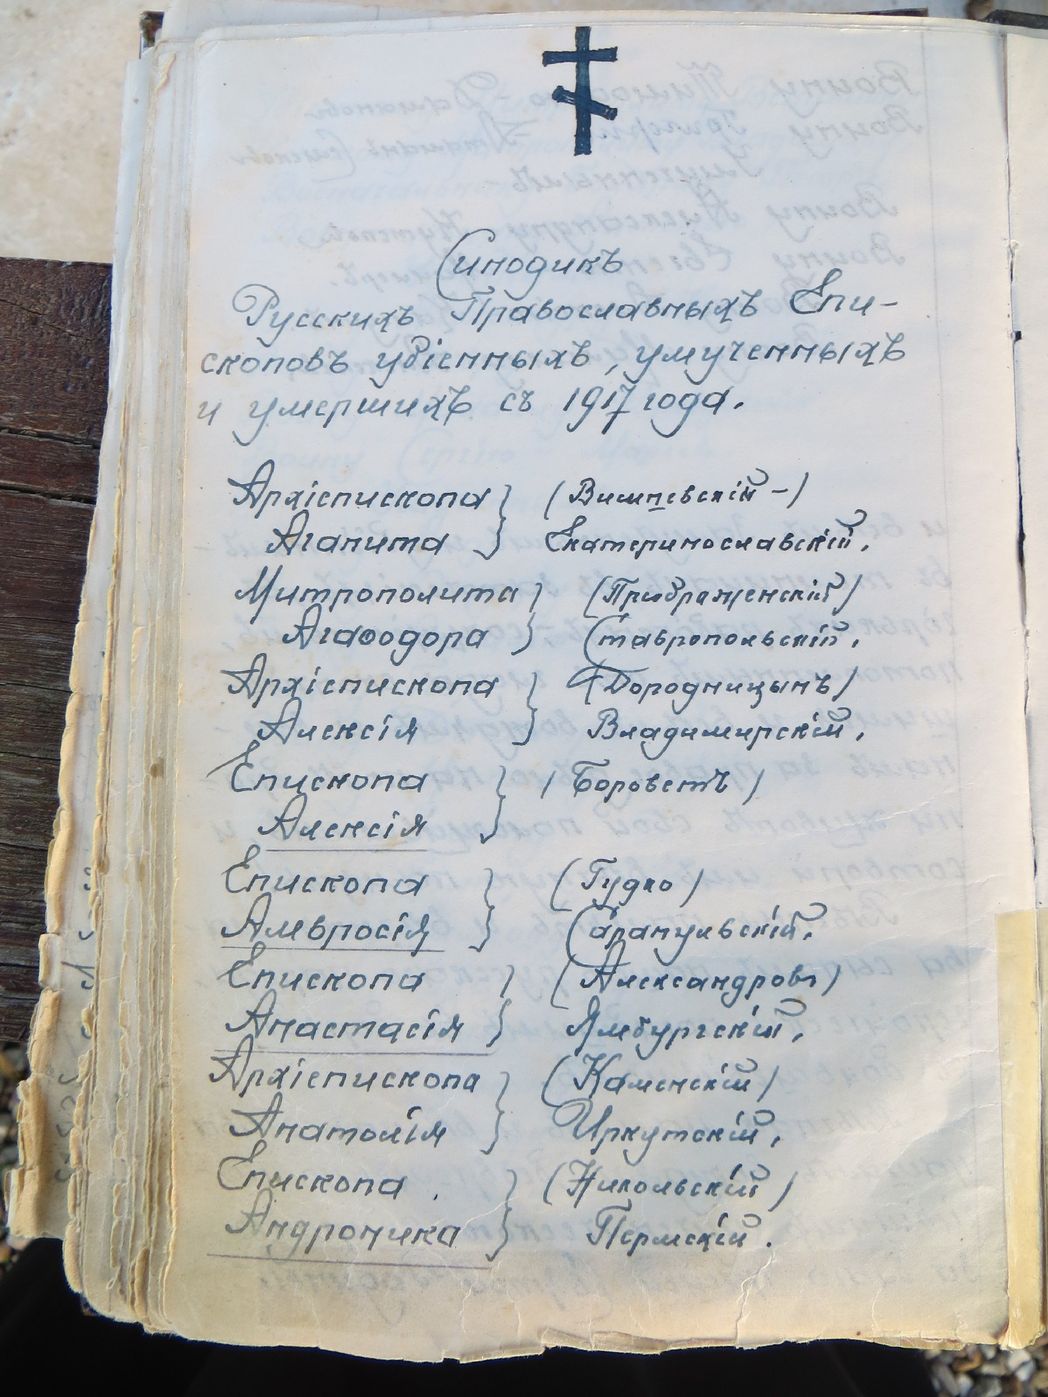 Синодикъ
Русскихъ Православныхъ Епи-
скоповъ убіенныхъ, умученныхъ
и умершихъ съ 1917 года.
Архіепископа } (Вишневскій -)
Агапита } Екатеринославскій.
Митрополита } (Преображенскій)
Агаѳодора } Ставропольскій.
Архіепископа } (Дородницынъ)
Алексія } Владимирскій.
Епископа } (            )
Алексія }
Епископа } (Гудко)
Амвросія } Сарапульскій.
Епископа } (Александровъ)
Анастасія } Ямбургскій.
Архіепископа } (Каменскій)
Анатолія } Иркутскій.
Епископа } (Никольскій)
Андроника } Пермскій.